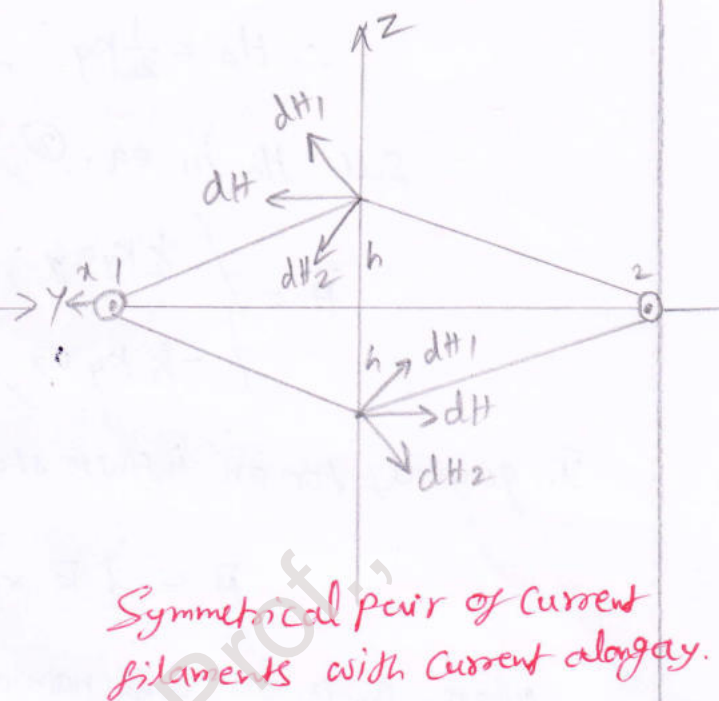 Z
dH1
dH
dH2
h
x 1
2
Y
h
dH1
dH
dH2
Symmetrical pair of Current
filaments with Current along ay.
Prof.,